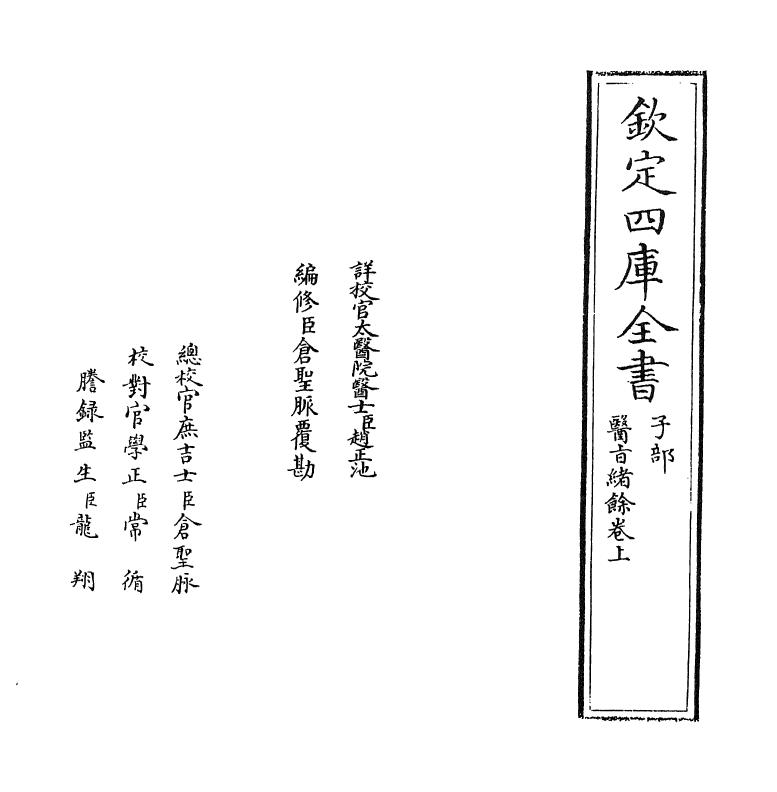 欽定四庫全書
子部
醫㫖緒餘卷上
詳校官太醫院醫士臣趙正池
編修臣倉聖脈覆勘
總校官庶吉士臣倉聖脈
校對官學正臣常循
謄録監生臣龍翔